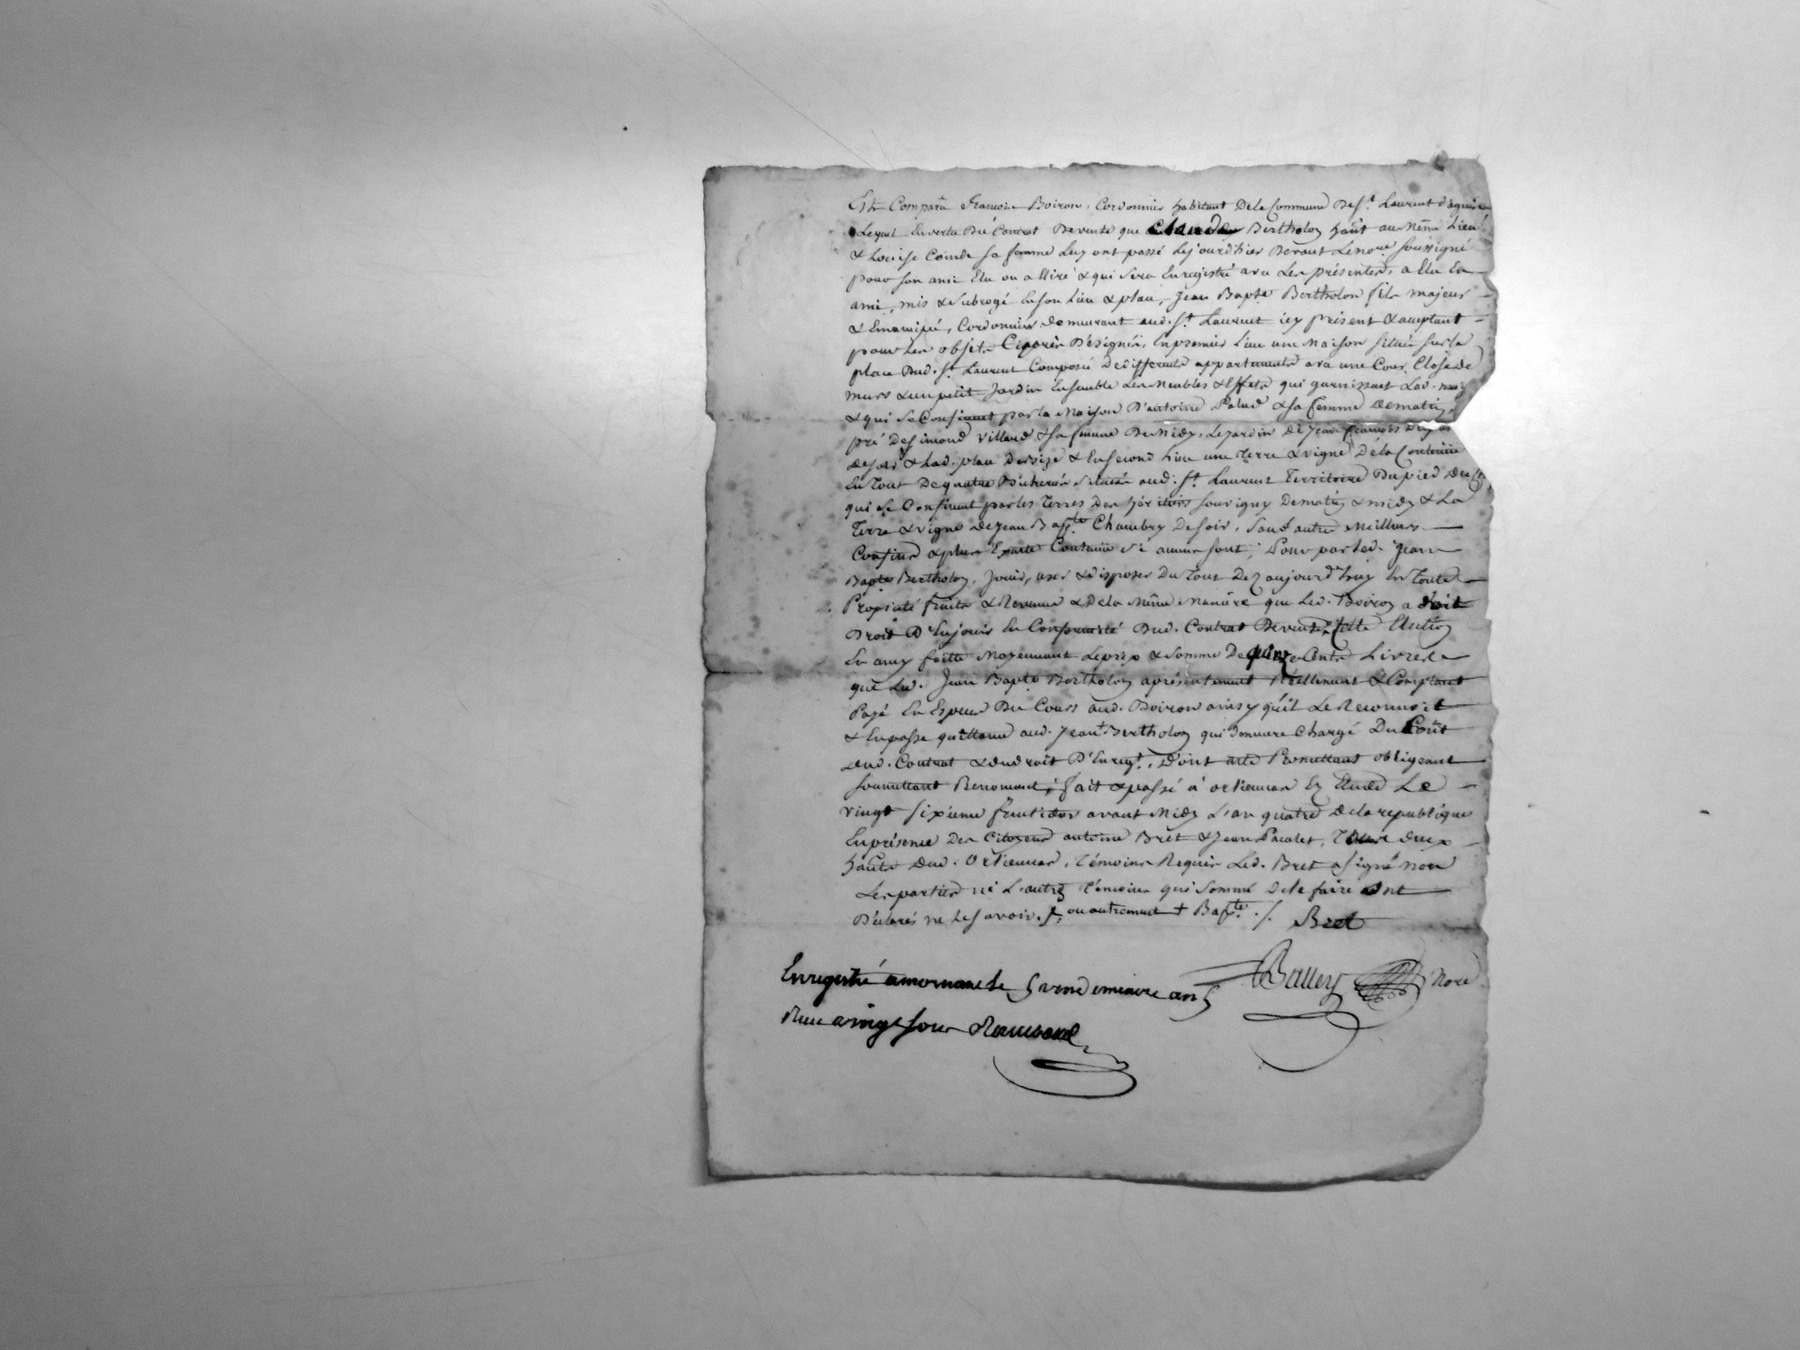 Est Comparu François Boiron, Cordonnier habitant De la Commune De St. Laurent d'agny
Lequel En vertu Du Contrat De vente que Claude Bertholon habt. au Même Lieu
& Louise Coude sa femme Luy ont passé Cejourd'hier Devant Le nore. soussigné
pour son amie Elu ou a Elire & qui sera Enregistré avec Les présentes, a Elu En
ami, mis & subrogé En son Lieu & place, Jean Bapte Bertholon fils majeur
& Emancipé, Cordonnier demeurant aud. St. Laurent icy présent & acceptant
pour Les objets Cy après Désignés, En premier Lieu une Maison située sur la
place Dud. St. Laurent Composée De différents appartements avec une Cour Close de
murs & un petit Jardin Ensemble Les Meubles & Effets qui garnissent Lad.
& qui se Confinent par la Maison D'antoine & sa femme De matin,
pré De simond Villard & sa femme De Midy, Le jardin De Jean françois
de soir & Lad. place De bize & En second Lieu une Terre & vigne De la Contenue
En Tout De quatre Bicherées située aud. St. Laurent Territoire Du pied
qui se Confinent par les Terres Des héritiers Souvigny De matin & midy & La
Terre & vigne de Jean Bapte. Chambry De soir, Sauf autres Meilleurs
Confins & plus Exacte Contenue si aucuns sont, Pour par led. Jean
Bapte Bertholon, Jouir, user & disposer Du Tout Dez aujourd'huy En Toute
Propriété fruits & Revenus & De la Même Manière que Led. Boiron a Droit
Droit D'En jouir En Conformité Dud. Contrat De vente, Cette Election
En amy faitte Moyennant Le prix & somme De quinze Cents Livres
que Led. Jean Bapte Bertholon a présentement Réellement & Comptant
Payé En Espèces Du Cours aud. Boiron ainsy qu'il Le Reconnoit
& En passe quittance aud. Jean + Bertholon qui Demeure Chargé Du Coût
dud. Contrat & du droit D'Enregt., Dont acte Promettant obligeant
soumettant Renonçant, fait & passé à orliennas En Etude Le
vingt sixieme fructidor avant Midy L'an quatre De la republique
En présence Des Citoyens antoine Bret & Jean Pacalet, Tous deux
habts. dud. Orliennas, Témoins Requis Led. Bret a signé non
Les parties ni L'autre Témoins qui sommé De le faire ont
Déclarés ne Le savoir. ou autrement + Bapte. /. Bret
Balley Nore
Enregistré a mornant le 5 vendemiaire an 5
Reçu a vingt sous